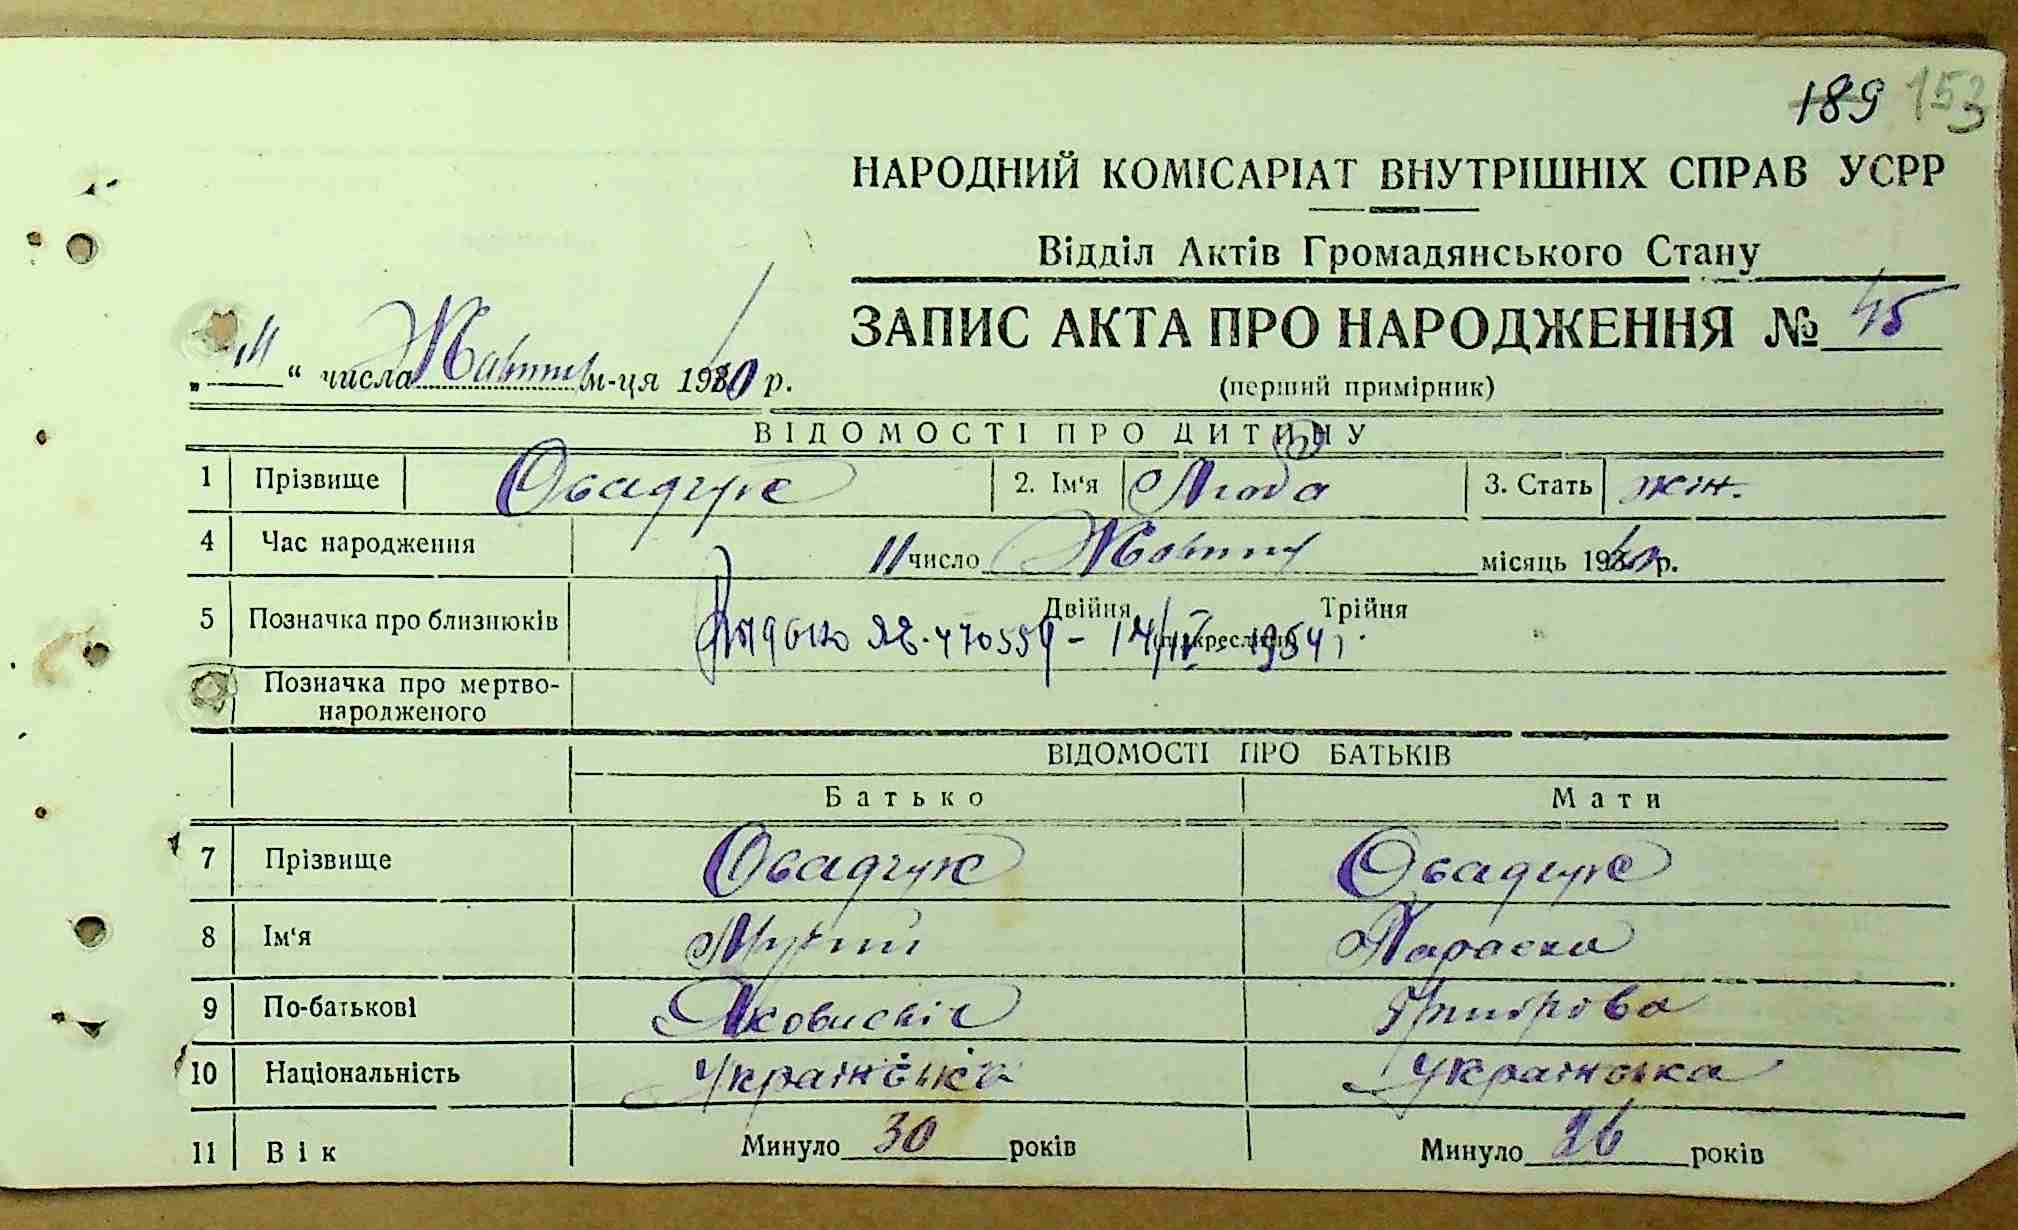 189 153
НАРОДНИЙ КОМІСАРІАТ ВНУТРІШНІХ СПРАВ УСРР
Відділ Актів Громадянського Стану
ЗАПИС АКТА ПРО НАРОДЖЕННЯ № 45
„11“ числа Жовтня м-ця 1940 р.
(перший примірник)
ВІДОМОСТІ ПРО ДИТИНУ
1 Прізвище Овадчук 2. Ім‘я Люба 3. Стать жін.
4 Час народження 11 число Жовтня місяць 1940 р.
5 Позначка про близнюків Двійня Трійня
470559 - 14/IV 1954 г.
Позначка про мертво-
народженого
ВІДОМОСТІ ПРО БАТЬКІВ
Батько Мати
7 Прізвище Овадчук Овадчук
8 Ім‘я Параска
9 По-батькові Яковлевіч
10 Національність Українська
11 Вік Минуло 30 років Минуло 26 років